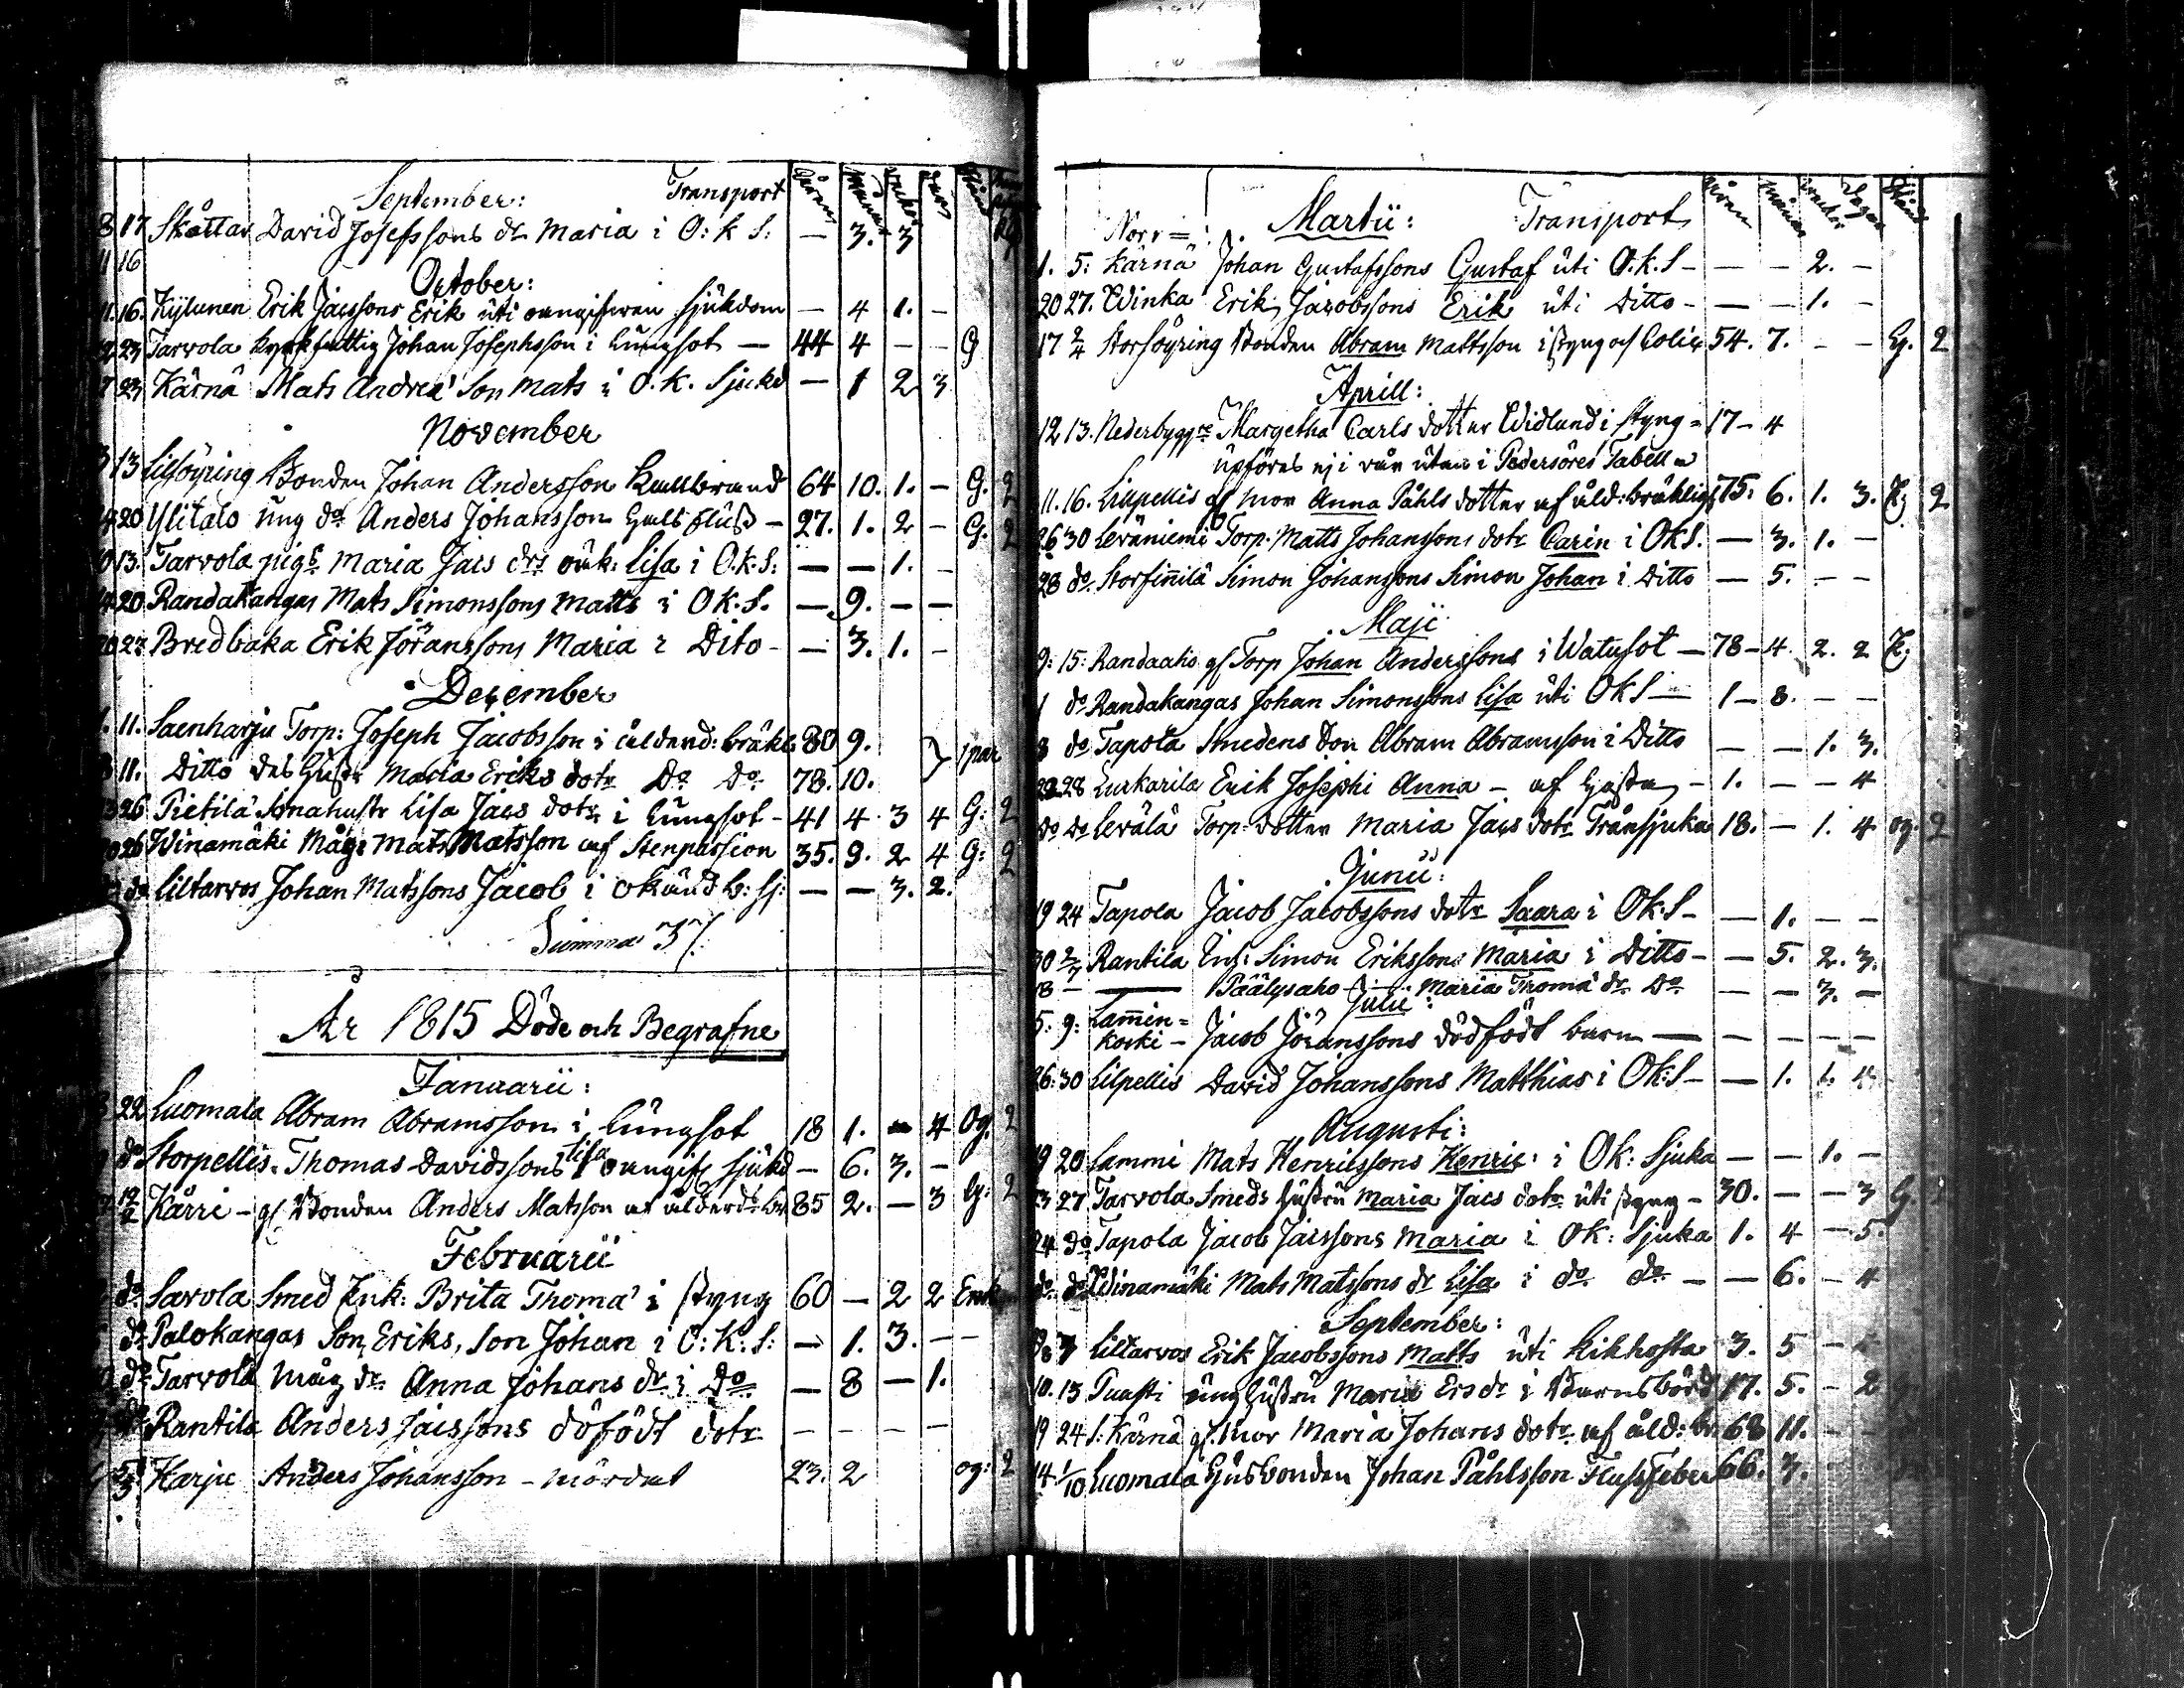 September: Transport
17 Skåttar David Josefssons dr Maria i O: k S: — 3. 3
16
October:
11. 16. Kylunen Erik Jacssons Erik uti oangifwen sjukdom — 4 1. -
23 Tarvola Johan Josephsson i Lungsot — 44 4 - - G
23 Kärnä Mats Andreæ Son Mats i O. K. Sjukd — 1 2 3
November
13 Lillsöyring Bonden Johan Andersson Kallbrand 64 10. 1. - G. 2
20 Ylitalo ung do Anders Johansson Hals fluss - 27. 1. 2 - G. 2
13. Tarvola pigs Maria Jacs drs oäk: Lisa i O. k. S: — — 1. -
20. Randakangas Mats Simonssons Matts i O K. S. — 9. — —
27. Bredbaka Erik Jöranssons Maria i Dito - — 3. 1. -
December
11. Saenharju Torp: Joseph Jacobsson i ålderd: bräkl: 80 9. } 1 par
11. Ditto des Hustr Maria Eriks dotr Do Do 78. 10.
26 Pietilä Lisa Jacs dotr i Lungsot - 41 4 3 4 G: 2
26 Winamäki Måg: Mats Matsson af Stenpassion 35. 9. 2 4 G: 2
do Liltarvos Johan Matssons Jacob i okänd b: sj: — — 3. 2.
Summa 37.
År 1815 Döde och Begrafne
Januarii:
22 Luomala Abram Abramsson i Lungsot 18 1. - 4 Og. 2
do Storpellis. Thomas Davidssons Lisa oangif sjukd - 6. 3. -
12/2 Kärri - gl Bonden Anders Matsson af ålderds br 85 2. — 3 G: 2
Februarii
do Sarvola Smed Enk: Brita Thomæ i styng 60 — 2 2 Enk
do Palokangas Son Eriks, Son Johan i O: K: S: — 1. 3. - -
do Tarvola måg dr Anna Johans dr i Do — 8 — 1.
do Rantila Anders Jacssons döfödt dotr - - - -
5/3 Harju Anders Johansson - mördat 23. 2 og: 2
Norr = Martii: Transport
1. 5: Kärnä Johan Gustafssons Gustaf uti O. k. S - — - 2. -
20 27. Winka Erik Jacobssons Erik uti Ditto - — — 1. -
17 2/4 Storsöyring Bonden Abram Mattsson i styng af Colic 54. 7. - - G. 2
Aprill:
12 13. Nederbyggre Margetha Carls dotter Widlund i styng = 17 - 4
upföres ej i vår utan i Pedersöres Tabell
11. 16. Lilpellis gl mor Anna Påhls dotter af åld: bräklight 75. 6. 1. 3. 2
26 30 Leväniemi Torp. Matts Johanssons dotr Carin i O k S. — 3. 1. —
28 do Storfinnilä Simon Johanssons Simon Johan i Ditto — 5. - -
Maji
9: 15: Randaaho gl Torp Johan Anderssons i Watusot — 78 - 4. 2. 2
1 do Randakangas Johan Simonssons Lisa uti O k S — 1 - 8. - -
8 do Tapola Smedens Son Abram Abramsson i Ditto — — 1. 3.
28 Lurkarila Erik Josephi Anna - af - 1. - - 4
Do Do Levälä Torp. dotter Maria Jacs dotr Trånsjuka 18. - 1. 4 og. 2
Junii:
19 24 Tapola Jacob Jacobssons dotr Saara i O k. S - — 1. - -
30 2/7 Rantila Simon Erikssons Maria i Ditto - — 5. 2. 3.
18 - — Päälysaho - Maria Thomæ dr Do — — 3. —
Julii:
5: 9: Lammin=
koski - Jacob Jöranssons dödfödt barn — - - - -
26: 30 Lilpellis David Johanssons Matthias i O k: S - — 1. 1. 4
Augusti:
19 20 Lammi Mats Henricssons Henric: i O k: Sjuka — — 1. -
23 27 Tarvola Smeds hustru Maria Jacs dotr uti styng - 30. — — 3 G
24 do Tapola Jacob Jacssons Maria i O K: Sjuka 1. 4 - 5.
do do Winamäki Mats Matssons dr Lisa i do do - — 6. - 4
September:
Liltarvos Erik Jacobssons Matts uti Kikhosta 3. 5 -
10. 13 ung hustru Maria Ers dr i Barnsbörd 17. 5. - 2
19 24 S: Kärnä gl. mor Maria Johans dotr af åld: br. 68 11. -
14 1/10 Luomala Husbonden Johan Påhlsson Fluss Feber 66. 3. -